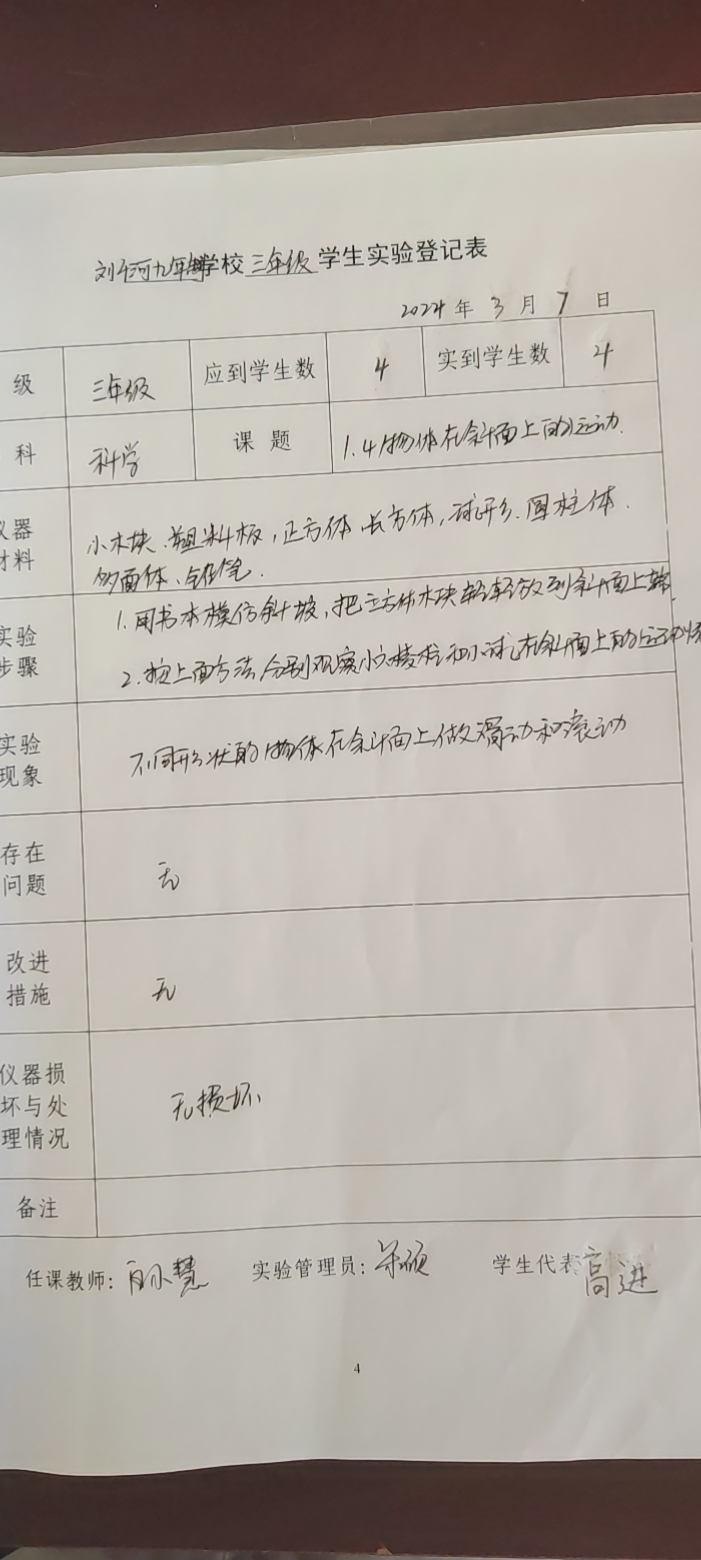 刘河九年制学校三年级学生实验登记表
2024年3月7日
级 三年级 应到学生数 4 实到学生数 4
科 科学 课题 1.4物体在斜面上的运动.
仪器
材料
小木块、塑料板,正方体、长方体,球形、圆柱体.
多面体、铅笔.
实验
步骤
1.用书本模仿斜坡,把立方体木块轻轻放到斜面上端.
2.按上面方法分别观察小六棱柱和小球在斜面上的运动
实验
现象
不同形状的物体在斜面上做滑动和滚动
存在
问题
无
改进
措施
无
仪器损
坏与处
理情况
无损坏
备注
任课教师: 小慧 实验管理员: 学生代表 高进
4